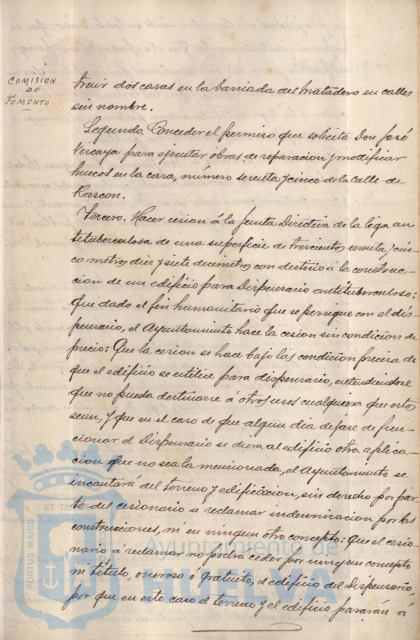 COMISION
DE
FOMENTO
truir dos casas en la barriada del Matadero en calles
sin nombre.
Segundo. Conceder el permiso que solicita Don José
Vizcaya para ejecutar obras de reparacion y modificar
huecos en la casa, número sesenta y cinco de la calle de
Rascon.
Tercero. Hacer cesion á la Junta Directiva de la liga an
tituberculosa de una superficie de trescientos sesenta y cin
co metros diez y siete decimetros con destino á la construc-
cion de un edificio para Dispensario antituberculoso:
que dado el fin humanitario que se persigue con el dis-
pensario, el Ayuntamiento hace la cesion sin condicion de
precio: Que la cesion se hace bajo las condicion precisa de
que el edificio se utilice para dispensario, entendiendose
que no pueda destinarse á otros usos cualquiera que estos
sean, y que en el caso de que algun dia dejare de fun-
cionar el Dispensario se diera al edificio otra aplica-
cion que no sea la mencionada, el Ayuntamiento se
incautará del terreno y edificacion, sin derecho por par
te del cesionario a reclamar indemnizacion por las
construcciones, ni en ningun otro concepto: Que el cesio
nario a reclamar no podrá ceder por ningun concepto
ni título, oneroso o gratuito, el edificio del Dispensario,
por que en este caso el terreno y el edificio pasaran á
PORTUS MARIS
ET TE
Ayuntamiento de
HUELVA